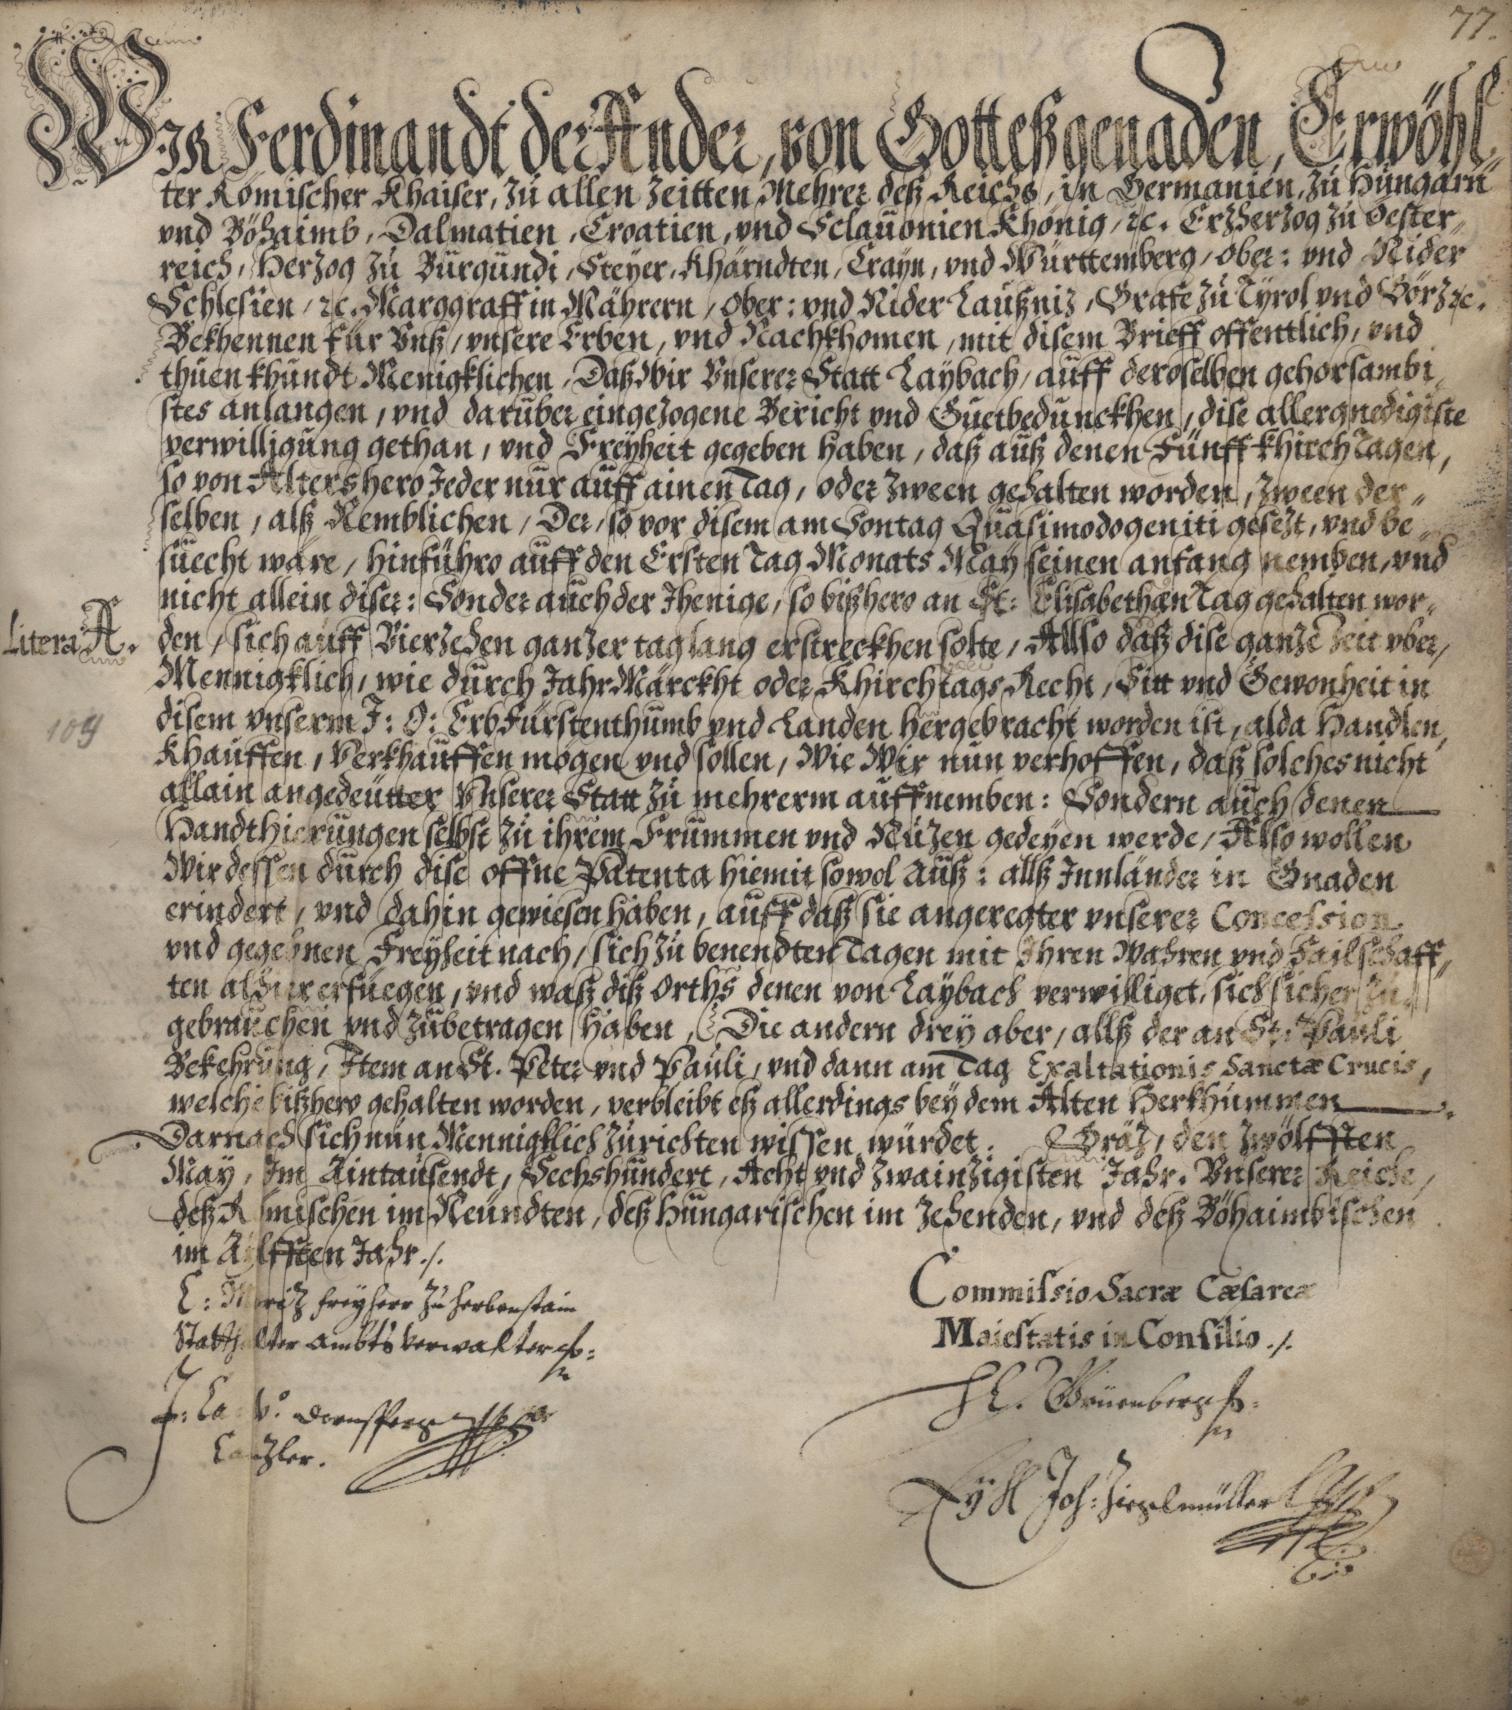 77.
Wir Ferdinandt der Ander, von Gottes genaden, Erwöhl„
ter Römischer Khaiser, zu allen Zeitten Mehrer deß Reichs, in Germanien, zu Hungarn
vnd Böhaimb, Dalmatien, Croatien, vnd Sclauonien Khönig, ꝛc. Erzherzog zu Oester„
reich, Herzog zu Burgundi, Steyer, Khärndten, Crayn, vnd Württemberg, Ober: vnd Nider
Schlesien, ꝛc. Marggraff in Mährern, Ober: vnd Nider Laußniz, Grafe zu Tyrol vnd Görz ꝛc.
Bekhennen für Vnß, vnsere Erben, vnd Nachkhomen, mit disem Brieff offentlich, vnd
thuen khundt Menigklichen, Daß Wir Vnserer Statt Laybach, auff deroselben gehorsambi„
stes anlangen, vnd darüber eingezogene Bericht vnd Guetbedunckhen, dise allergnedigiste
verwilligung gethan, vnd Freyheit gegeben haben, daß auß denen Fünff khirchTagen,
so von Alters hero Jeder nur auff ainen Tag, oder zween gehalten worden, zween der„
selben, alß Nemblichen, Der, so vor disem am Sontag Quasimodogeniti gesezt, vnd be„
suecht wäre, hinführo auff den Ersten Tag Monats May seinen anfang nemben, vnd
nicht allein diser: Sonder auch der Jhenige, so bißhero an St: Elisabethæn Tag gehalten wor„
Litera A. den, sich auff Vierzehen ganzer tag lang erstreckhen solte, Allso daß dise ganze Zeit vber,
Mennigklich, wie durch JahrMärckht oder Khirchtags Recht, Sitt vnd Gewonheit in
109 disem vnserm J: O: ErbFürstenthumb vnd Landen hergebracht worden ist, alda Handlen,
Khauffen, Verkhauffen mögen vnd sollen, Wie Wir nun verhoffen, daß solches nicht
allain angedeutter Vnserer Statt zu mehrerm auffnemben: Sondern auch denen
Handthierungen selbst zu ihrem Frummen vnd Nuzen gedeyen werde, Also wollen
Wir dessen durch dise offne Patenta hiemit sowol Auß: allß Innländer in Gnaden
erindert, vnd dahin gewiesen haben, auff daß sie angeregter vnserer Concession
vnd gegebnen Freyheit nach, sich zu benendten Tagen mit Ihren Wahren vnd Failschaff„
ten alhier erfuegen, vnd waß diß Orths denen von Laybach verwilliget, sich sicher zu
gebrauchen vnd zubetragen haben, Die andern drey aber, allß der an St: Pauli
Bekehrung, Item an St. Peter vnd Pauli, vnd dann am Tag Exaltationis Sanctæ Crucis,
welche bißhero gehalten worden, verbleibt eß allerdings bey dem Alten Herkhummen.
Darnach sich nun Mennigklich zurichten wissen würdet. Gräz, den zwölfften
May, Im Aintausendt, Sechshundert, Acht vnd zwainzigisten Jahr. Vnserer Reiche,
deß Römischen im Neundten, deß Hungarischen im Zehenden, vnd deß Böhaimbischen
im Ailfften Jahr./.
C: Moritz freyherr zu herbenstain
Statthalter ambts verwalter
Canzler.
Commissio Sacræ Cæsareæ
Maiestatis in Consilio./.
Joh: Zieglmüller